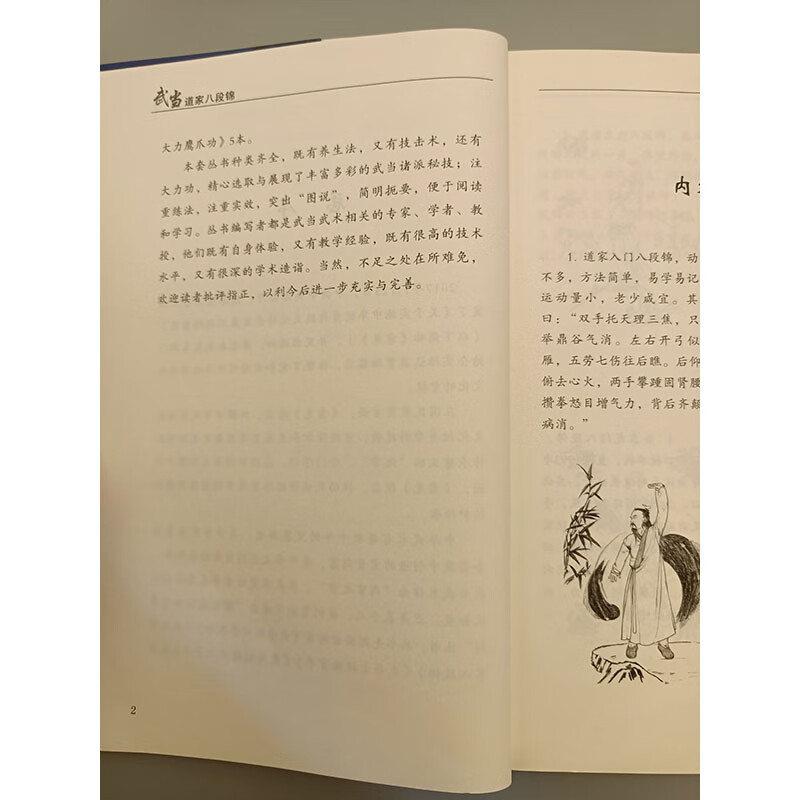 武当道家八段锦
大力鹰爪功》5本。
本套丛书种类齐全，既有养生法，又有技击术，还有
大力功，精心选取与展现了丰富多彩的武当诸派秘技；注
重练法，注重实效，突出“图说”，简明扼要，便于阅读
和学习。丛书编写者都是武当武术相关的专家、学者、教
授，他们既有自身体验，又有教学经验，既有很高的技术
水平，又有很深的学术造诣。当然，不足之处在所难免，
欢迎读者批评指正，以利今后进一步充实与完善。
2
内
1. 道家入门八段锦，动
不多，方法简单，易学易记
运动量小，老少咸宜。其
曰：“双手托天理三焦，只
举鼎谷气消。左右开弓似
雁，五劳七伤往后瞧。后仰
俯去心火，两手攀踵固肾腰
攒拳怒目增气力，背后齐颠
病消。”